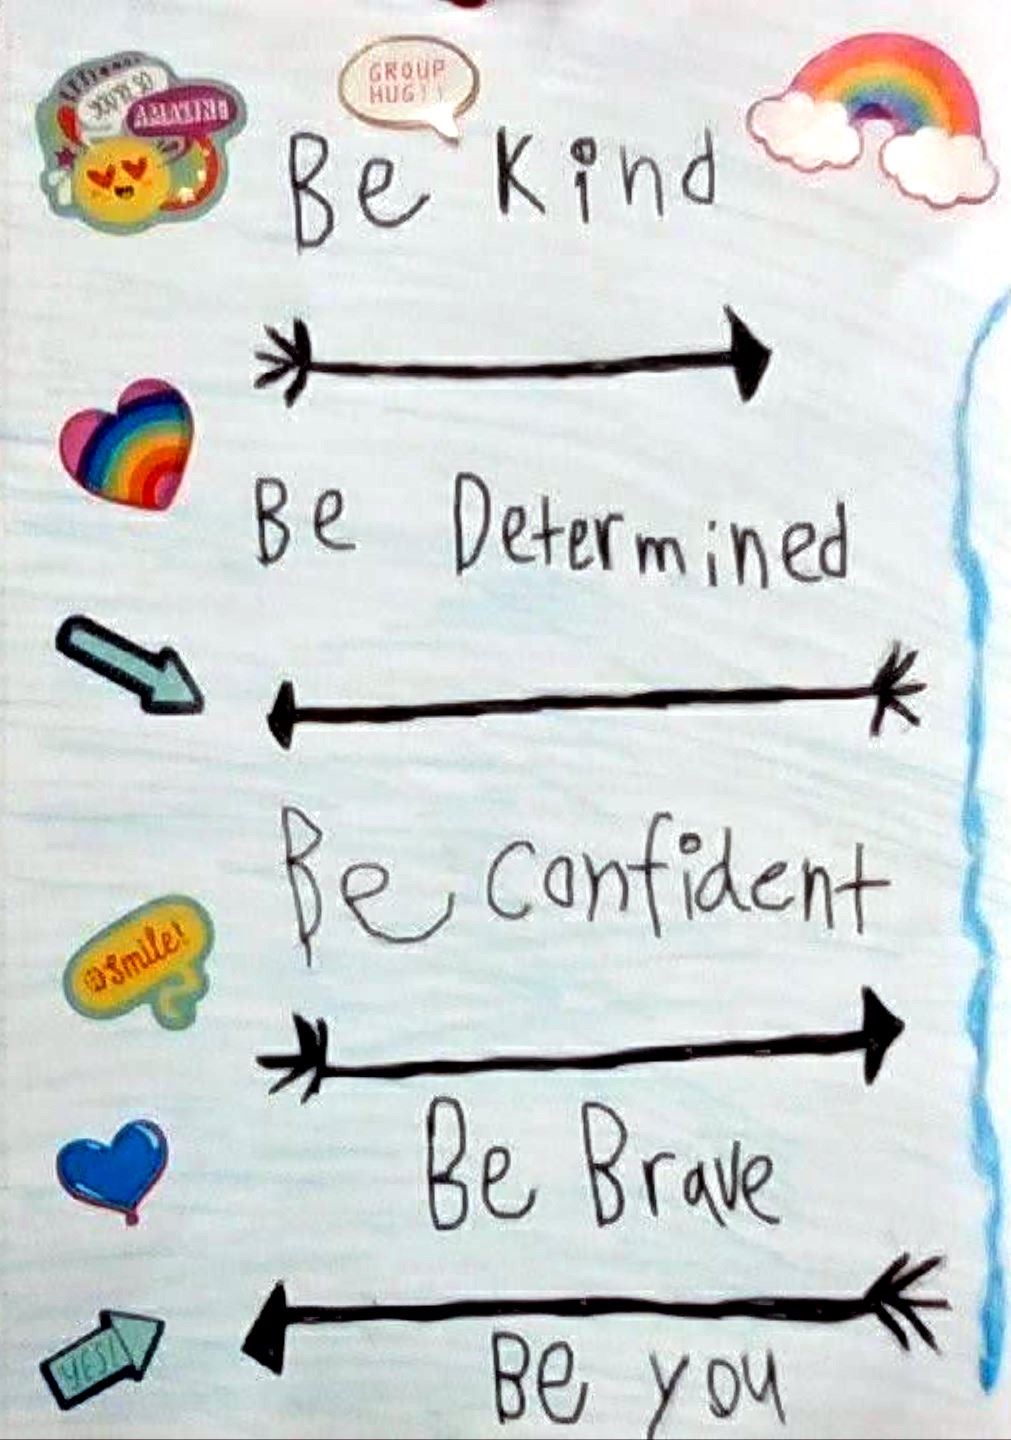 AMAZING
GROUP
HUG!!
Be Kind
Be Determined
Be Confident
@Smile!
Be Brave
YES!
Be you